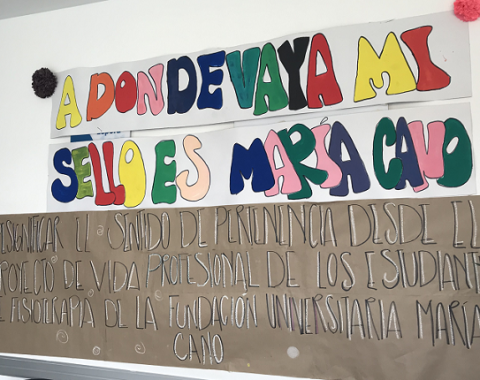 A DONDE VAYA MI
SELLO ES MARÍA CANO
ESIGNIFICAR EL SENTIDO DE PERTENENCIA DESDE EL
ROYECTO DE VIDA PROFESIONAL DE LOS ESTUDIANT
E FISIOTERAPIA DE LA FUNDACIÓN UNIVERSITARIA MARÍA
CANO